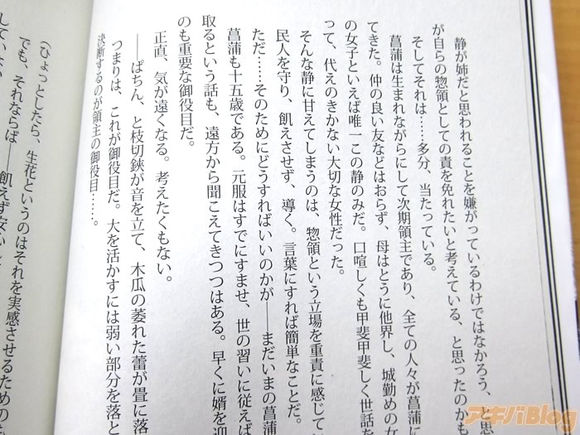 静が姉だと思われることを嫌がっているわけではなかろう、と思
が自らの惣領としての責を免れたいと考えている、と思ったのかも
そしてそれは……多分、当たっている。
菖蒲は生まれながらにして次期領主であり、全ての人々が菖蒲に
てきた。仲の良い友などはおらず、母はとうに他界し、城勤めの女
の女子といえば唯一この静のみだ。口喧しくも甲斐甲斐しく世話を
って、代えのきかない大切な女性だった。
そんな静に甘えてしまうのは、惣領という立場を重責に感じてい
民人を守り、飢えさせず、導く。言葉にすれば簡単なことだ。
ただ……そのためにどうすればいいのかが――まだいまの菖蒲
菖蒲も十五歳である。元服はすでにすませ、世の習いに従えば
取るという話も、遠方から聞こえてきつつはある。早くに婿を迎
のも重要な御役目だ。
正直、気が遠くなる。考えたくもない。
――ぱちん、と枝切鋏が音を立て、木瓜の萎れた蕾が畳に落
つまりは、これが御役目だ。大を活かすには弱い部分を落と
決断するのが領主の御役目……。
(ひょっとしたら、生花というのはそれを実感させるための
でも、それならば――飢えず安い
アキバBlog